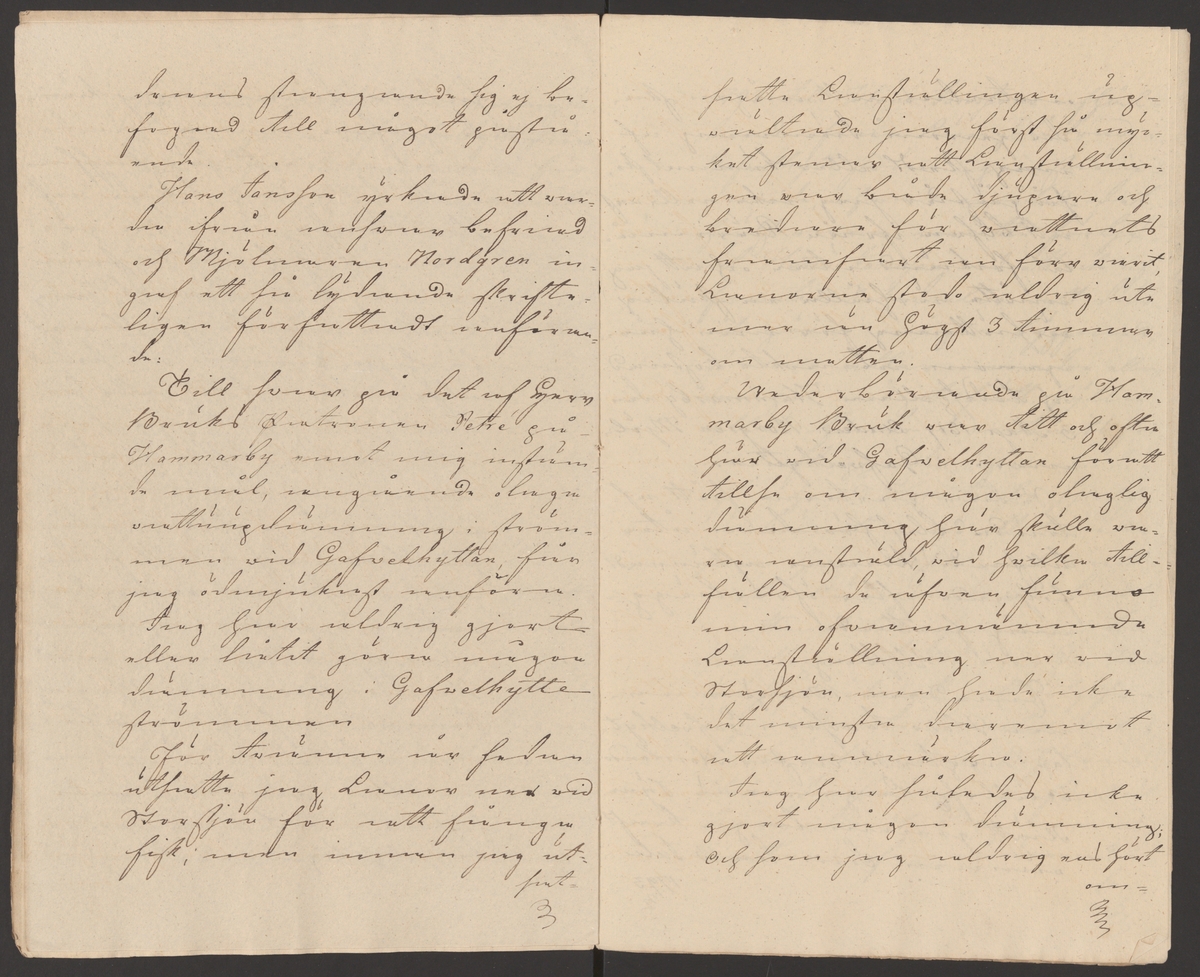 derens strängande sig ej be-
fogad till något påstå-
ende.
Hans Jansson yrkade att war-
da ifrån answar befriad
och Mjölnaren Nordgren in-
gaf ett så lydande skrifte-
ligen författadt anföran-
de:
Till swar på det af Herr
Bruks Patronen Petré på
Hammarby emot mig instäm-
de mål, angående olaga
wattuupdämning i ström-
men wid Gafvelhyttan, får
jag ödmjukast anföra.
Jag har aldrig gjort
eller låtit göra någon
dämning i Gafvelhytte
strömmen
För twänne år sedan
utsatte jag Lanor ner wid
Storsjön för att fånga
fisk; men innan jag ut-
sat-
satte Lanställningen up-
wältrade jag först så myc-
ket stenar, att Lanställnin-
gen war både djupare och
bredare för wattnets
framfart än förr warit,
Lanorne stodo aldrig ute
mer än högst 3 timmar
om natten.
Wederbörande på Ham-
marby Bruk war titt och ofta
här wid Gafvelhyttan för att
tillse om någon olaglig
dämning här skulle wa-
ra anstäld, wid hvilka till-
fällen de äfven funno
min ofvannämnde
Lanställning ner wid
Storsjön, men hade icke
det minsta deremot
att anmärka.
Jag har således icke
gjort någon dämning;
och som jag aldrig ens hört
om-